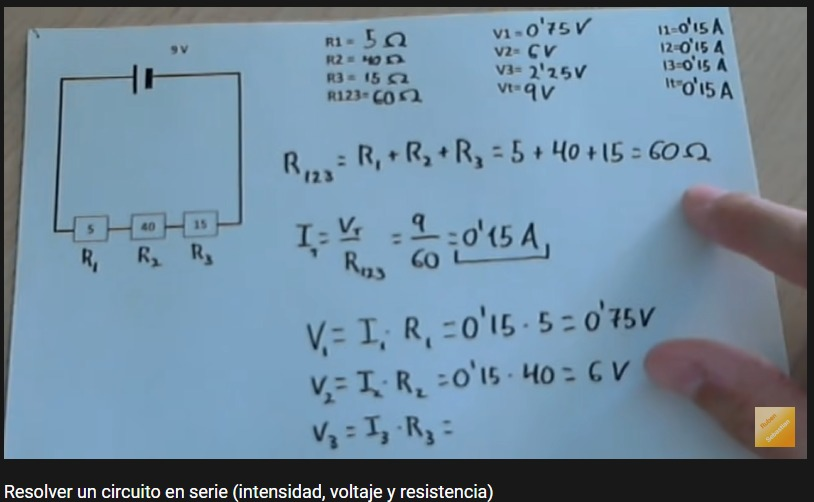 9V
R1 = 5 Ω
R2 = 40 Ω
R3 = 15 Ω
R123= 60 Ω
V1 = 0'75 V
V2= 6V
V3= 2'25V
Vt= 9V
I1=0'15 A
I2=0'15 A
I3=0'15 A
It=0'15 A
R₁₂₃ = R₁ + R₂ + R₃ = 5 + 40 + 15 = 60 Ω
5
40
15
R₁
R₂
R₃
I_T = V_T / R₁₂₃ = 9 / 60 = 0'15 A
V₁ = I₁ · R₁ = 0'15 · 5 = 0'75V
V₂ = I₂ · R₂ = 0'15 · 40 = 6 V
V₃ = I₃ · R₃ =
Ruben
Sebastian
Resolver un circuito en serie (intensidad, voltaje y resistencia)